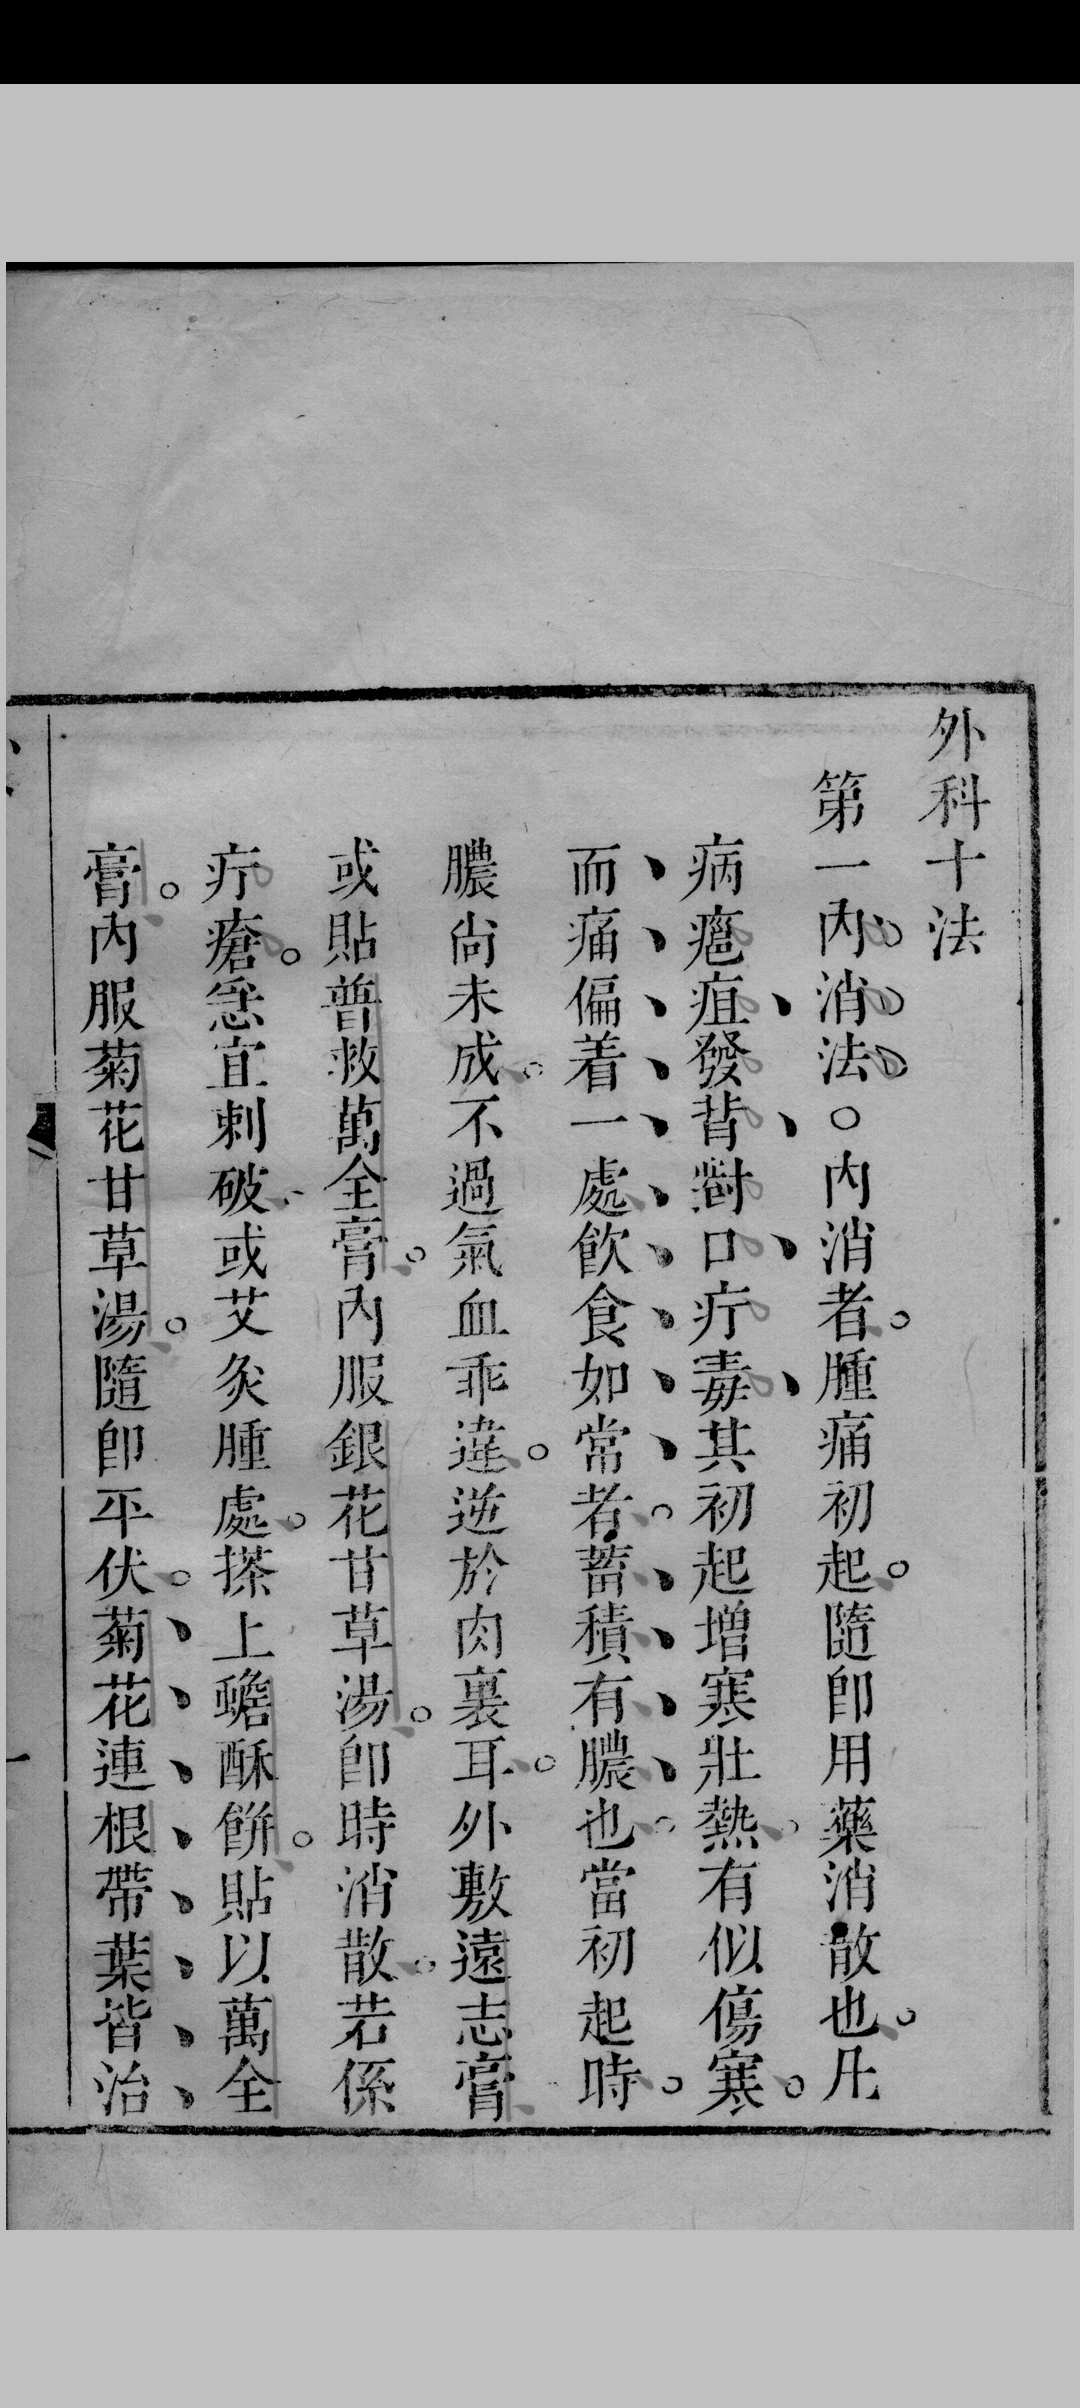 外科十法
第一內消法○內消者。腫痛初起。隨卽用藥消散也。凡
病癰疽發背對口疔毒其初起增寒壯熱。有似傷寒。
而痛偏着一處飲食如常者。蓄積有膿也。當初起時。
膿尚未成。不過氣血乖違。逆於肉裏耳。外敷遠志膏
或貼普救萬全膏。內服銀花甘草湯。卽時消散。若係
疔瘡。急宜刺破。或艾灸腫處。搽上蟾酥餅。貼以萬全
膏。內服菊花甘草湯。隨卽平伏。菊花連根帶葉皆治